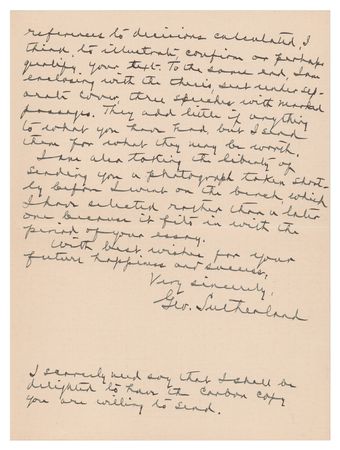 references to decisions calculated, I
think, to illustrate, confirm or perhaps
qualify, your text. To the same end, I am
enclosing with the thesis, sent under sep-
arate cover, three speeches with marked
passages. They add little if anything
to what you have had, but I send
them for what they may be worth.
I am also taking the liberty of
sending you a photograph taken short-
ly before I went on the bench, which
I have selected rather than a later
one because it fits in with the
period of your essay.
With best wishes for your
future happiness and success,
Very sincerely,
Geo. Sutherland
I scarcely need say that I shall be
delighted to have the carbon copy
you are willing to send.